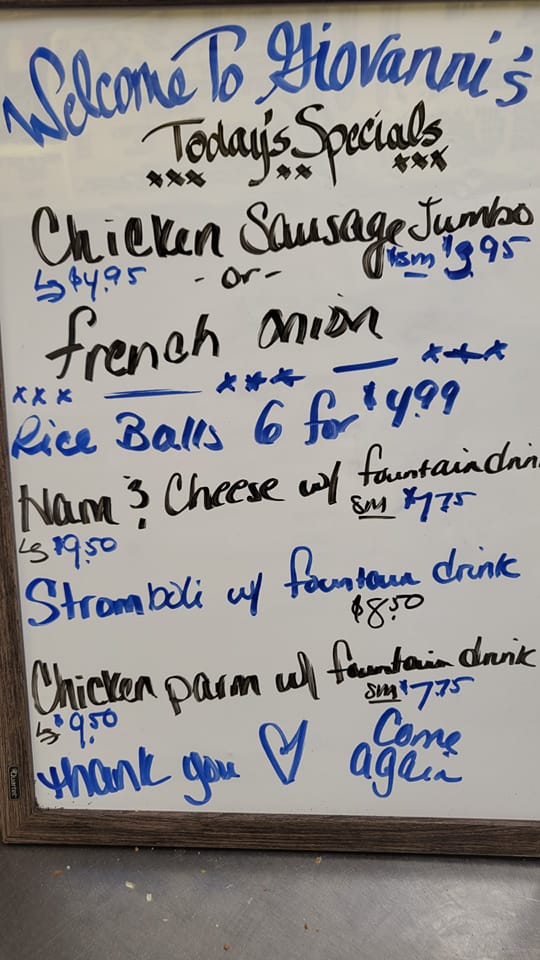 Welcome To Giovanni's
Today's Specials
xxx xx xxx
Chicken Sausage Jumbo
Lg $4.95 - or - sm $3.95
french onion
xxx xxx xxx
Rice Balls 6 for $4.99
Ham & Cheese w/ fountain drin
Lg $9.50 sm $7.75
Stromboli w/ fountain drink
$8.50
Chicken parm w/ fountain drink
Lg $9.50 sm $7.75
thank you ♡ Come
again
Quartet